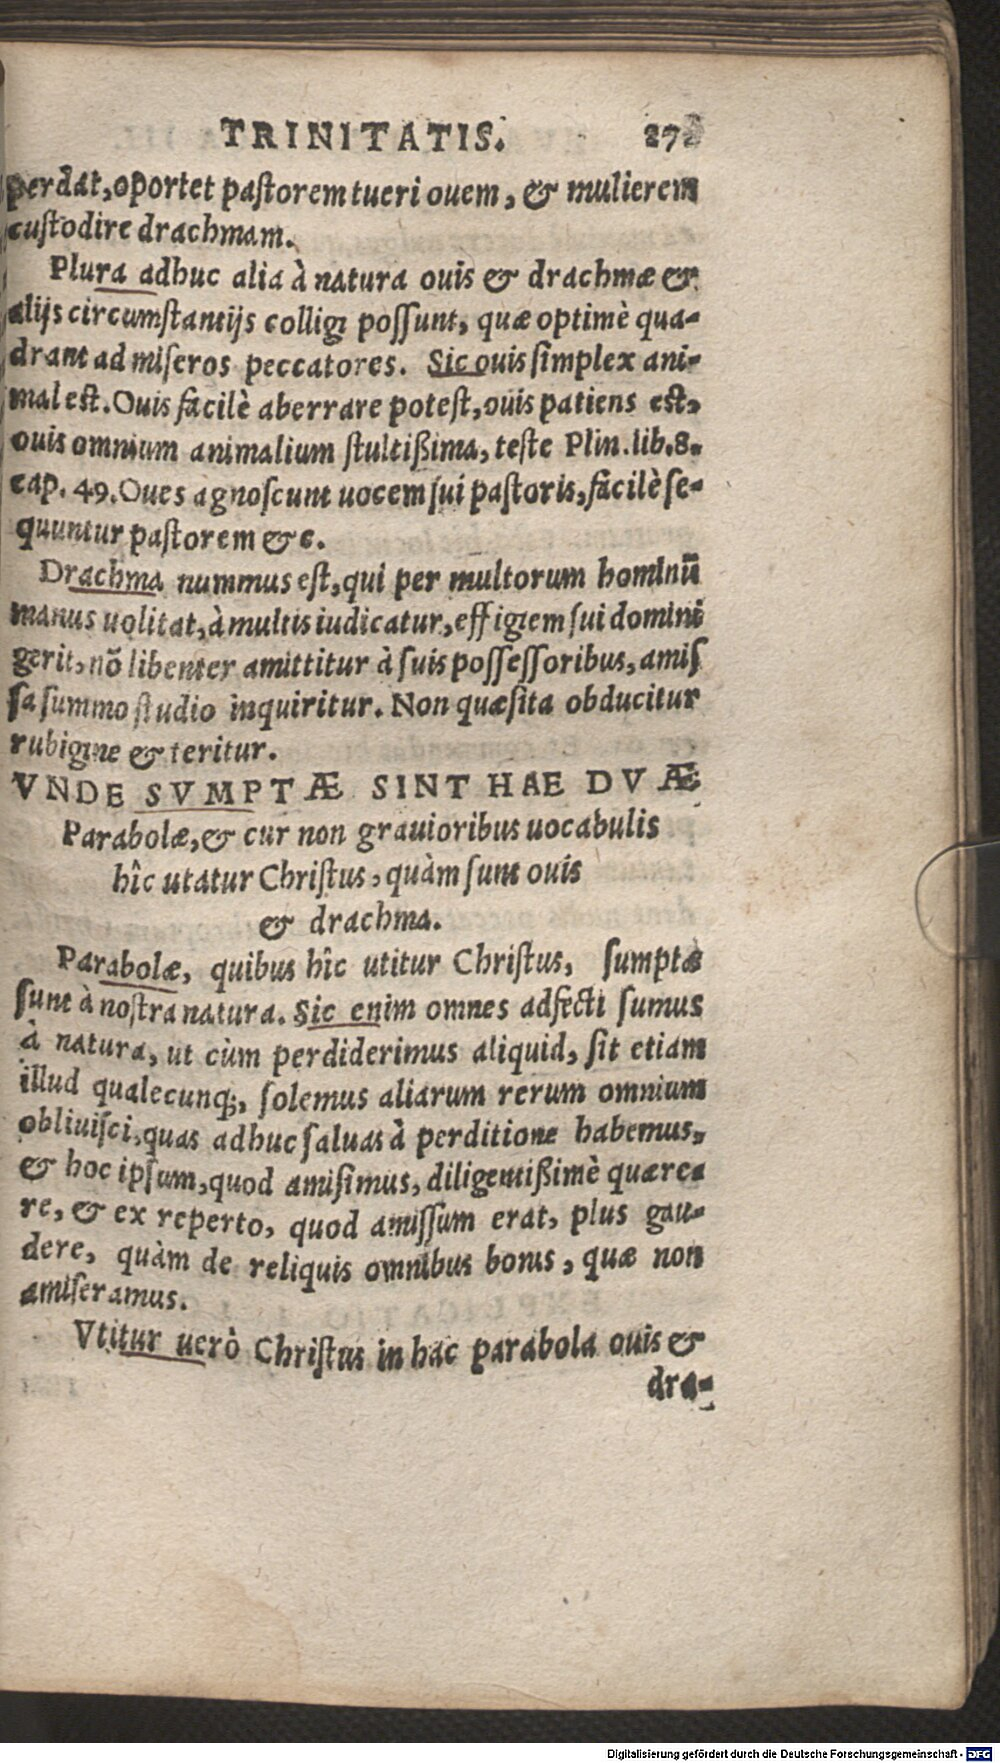 TRINITATIS. 273
perdat, oportet paſtorem tueri ouem, & mulierem
cuſtodire drachmam.
Plura adhuc alia à natura ouis & drachmæ &
alijs circumſtantijs colligi poſſunt, quæ optimè qua-
drant ad miſeros peccatores. Sic ouis ſimplex ani-
mal est. Ouis facilè aberrare poteſt, ouis patiens est,
ouis omnium animalium ſtultißima, teſte Plin. lib. 8.
cap. 49. Oues agnoſcunt uocem ſui paſtoris, facilè ſe-
quuntur paſtorem &c.
Drachma nummus eſt, qui per multorum hominū
manus uolitat, à multis iudicatur, effigiem ſui domini
gerit, nō libenter amittitur à ſuis poſſeſſoribus, amiſ
ſa ſummo ſtudio inquiritur. Non quæſita obducitur
rubigine & teritur.
VNDE SVMPTÆ SINT HAE DVÆ
Parabolæ, & cur non grauioribus uocabulis
hîc utatur Chriſtus, quàm ſunt ouis
& drachma.
Parabolæ, quibus hîc utitur Chriſtus, ſumptæ
ſunt à noſtra natura. Sic enim omnes adfecti ſumus
à natura, ut cùm perdiderimus aliquid, ſit etiam
illud qualecunq;, ſolemus aliarum rerum omnium
obliuiſci, quas adhuc ſaluas à perditione habemus,
& hoc ipſum, quod amiſimus, diligentißimè quære-
re, & ex reperto, quod amiſſum erat, plus gau-
dere, quàm de reliquis omnibus bonis, quæ non
amiſeramus.
Vtitur uerò Chriſtus in hac parabola ouis &
dra-
Digitalisierung gefördert durch die Deutsche Forschungsgemeinschaft - DFG